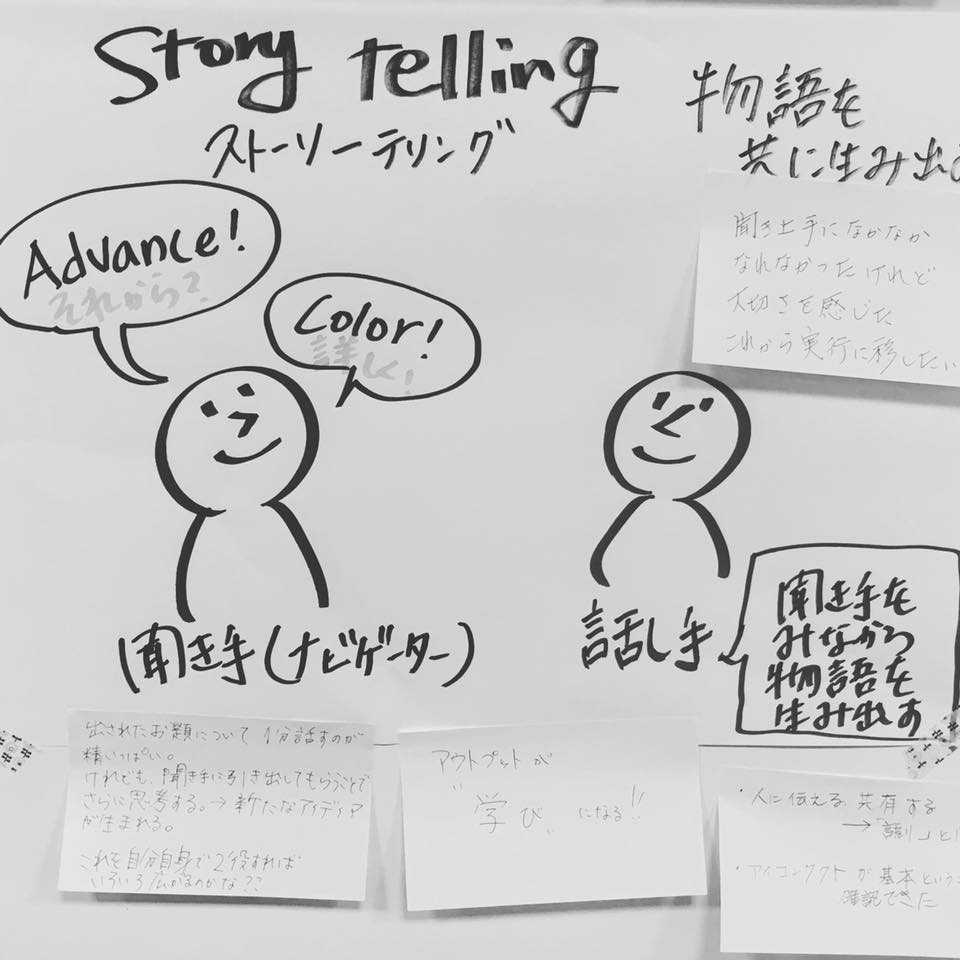 Story telling
ストーリーテリング
物語を
共に生み出
Advance!
それから?
Color!
詳しく!
聞き上手になかなか
なれなかったけれど
大切さを感じた
これから実行に移したい
聞き手(ナビゲーター)
話し手
聞き手を
みながら
物語を
生み出す
出されたお題について1分話すのが
精いっぱい。
けれども、聞き手に引き出してもらうことで
さらに思考する。→新たなアイディア
が生まれる。
これを自分自身で2役すれば
いろいろ広がるのかな??
アウトプットが
"学び"になる!!
・人に伝える、共有する
→「語り」と
・アイコンタクトが基本という
確認できた